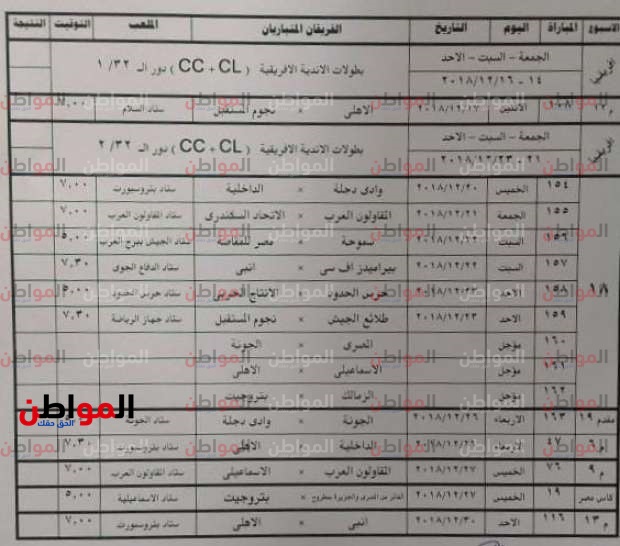 الاسبوع المباراة اليوم التاريخ الفريقان المتباريان الملعب التوقيت النتيجة
افريقيا الجمعة - السبت - الاحد بطولات الاندية الافريقية ( CC + CL ) دور الـ ١/٣٢
١٤ - ٢٠١٨/١٢/١٦
الاثنين ٢٠١٨/١٢/١٧ الاهلى × نجوم المستقبل ستاد السلام
افريقيا الجمعة - السبت - الاحد بطولات الاندية الافريقية ( CC + CL ) دور الـ ٢/٣٢
٢١ - ٢٠١٨/١٢/٢٣
١٨
١٥٤ الخميس ٢٠١٨/١٢/٢٠ وادى دجلة × الداخلية ستاد بتروسبورت ٧,٠٠
١٥٥ الجمعة ٢٠١٨/١٢/٢١ المقاولون العرب × الاتحاد السكندرى ستاد المقاولون العرب ٧,٠٠
١٥٦ السبت سموحة × مصر للمقاصة ستاد الجيش ببرج العرب ٥,٠٠
١٥٧ السبت ٢٠١٨/١٢/٢٢ بيراميدز اف سى × انبى ستاد الدفاع الجوى ٧,٣٠
١٥٨ الاحد حرس الحدود × الانتاج الحربى ستاد حرس الحدود ٥,٠٠
١٥٩ الاحد ٢٠١٨/١٢/٢٣ طلائع الجيش × نجوم المستقبل ستاد جهاز الرياضة ٧,٣٠
١٦٠ مؤجل المصرى × الجونة
١٦١ مؤجل الاسماعيلى × الاهلى
١٦٢ مؤجل الزمالك × بتروجيت
مقدم ١٩ ١٦٣ الاربعاء ٢٠١٨/١٢/٢٦ الجونة × وادى دجلة ستاد الجونة
م ٦ ٤٧ الاربعاء الداخلية × الاهلى ستاد بتروسبورت ٧,٣٠
م ٩ ٧٦ الخميس ٢٠١٨/١٢/٢٧ المقاولون العرب × الاسماعيلى ستاد المقاولون العرب ٧,٠٠
كاس مصر ١٩ الخميس ٢٠١٨/١٢/٢٧ الفائز من المصرى والجزيرة مطروح × بتروجيت ستاد الاسماعيلية ٥,٠٠
م ١٣ ١١٦ الاحد ٢٠١٨/١٢/٣٠ انبى × الاهلى ستاد بتروسبورت ٧,٠٠
المواطن
الحق حقك